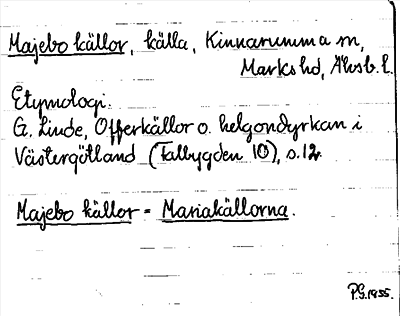 Majebo källor, källa, Kinnarumma sn,
Marks hd, Älvsb. l.
Etymologi.
G. Linde, Offerkällor o. helgondyrkan i
Västergötland (Falbygden 10), s. 12.
Majebo källor = Mariakällorna.
P.G. 1955.